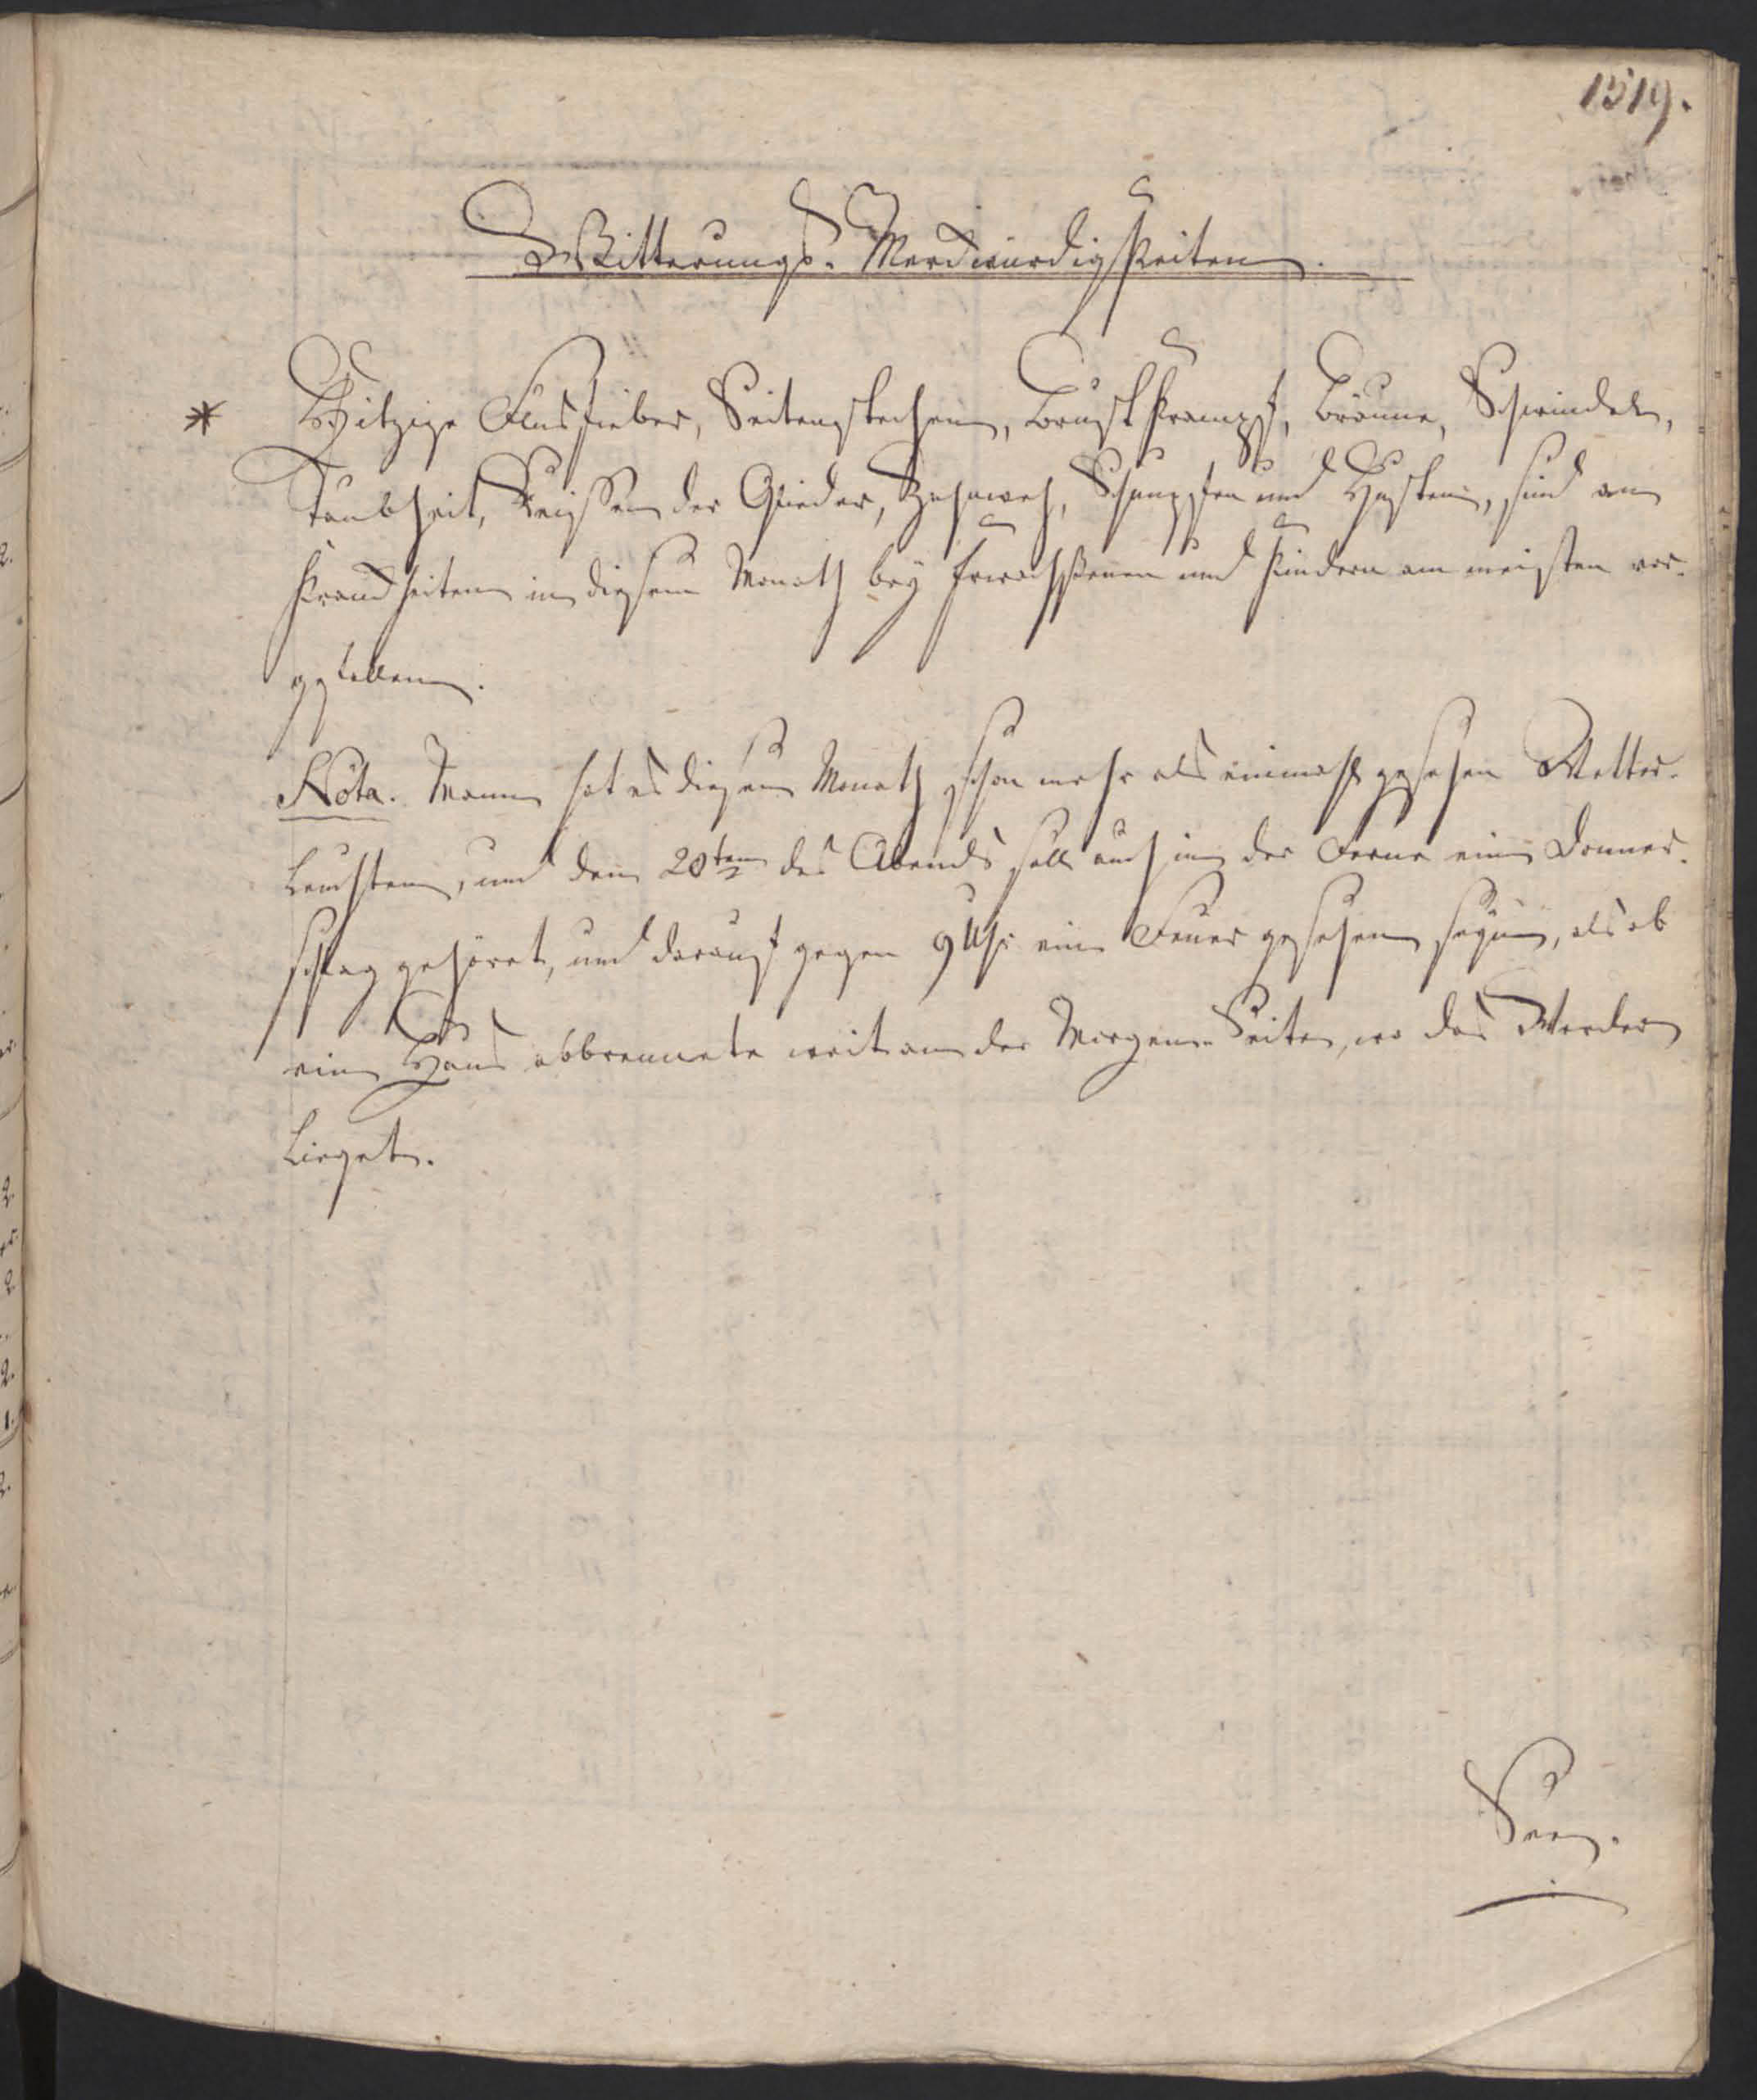 1519.
Witterungs-Merckwürdigkeiten.
* Hitzige Flusfieber, Seitenstechen, Brustkrampf, Bräune, Schwindel,
Taubheit, Reissen der Glieder, Zahnweh, Schnupfen und Husten, sind an
Kranckheiten in diesem Monath bey Erwachssenen und Kindern am meisten vor-
gefallen.
Nota. Mann hat es diesem Monath schon mehr als einmahl gesehen Wetter-
Leuchten, und den 28ten des Abends soll auch in der Ferne ein Donner-
schlag gehöret, und darauf gegen 9 Uhr ein Feuer gesehen seyn, als ob
ein Haus abbrennete weit an der Morgen-Seiten, wo das Werder
Lieget.